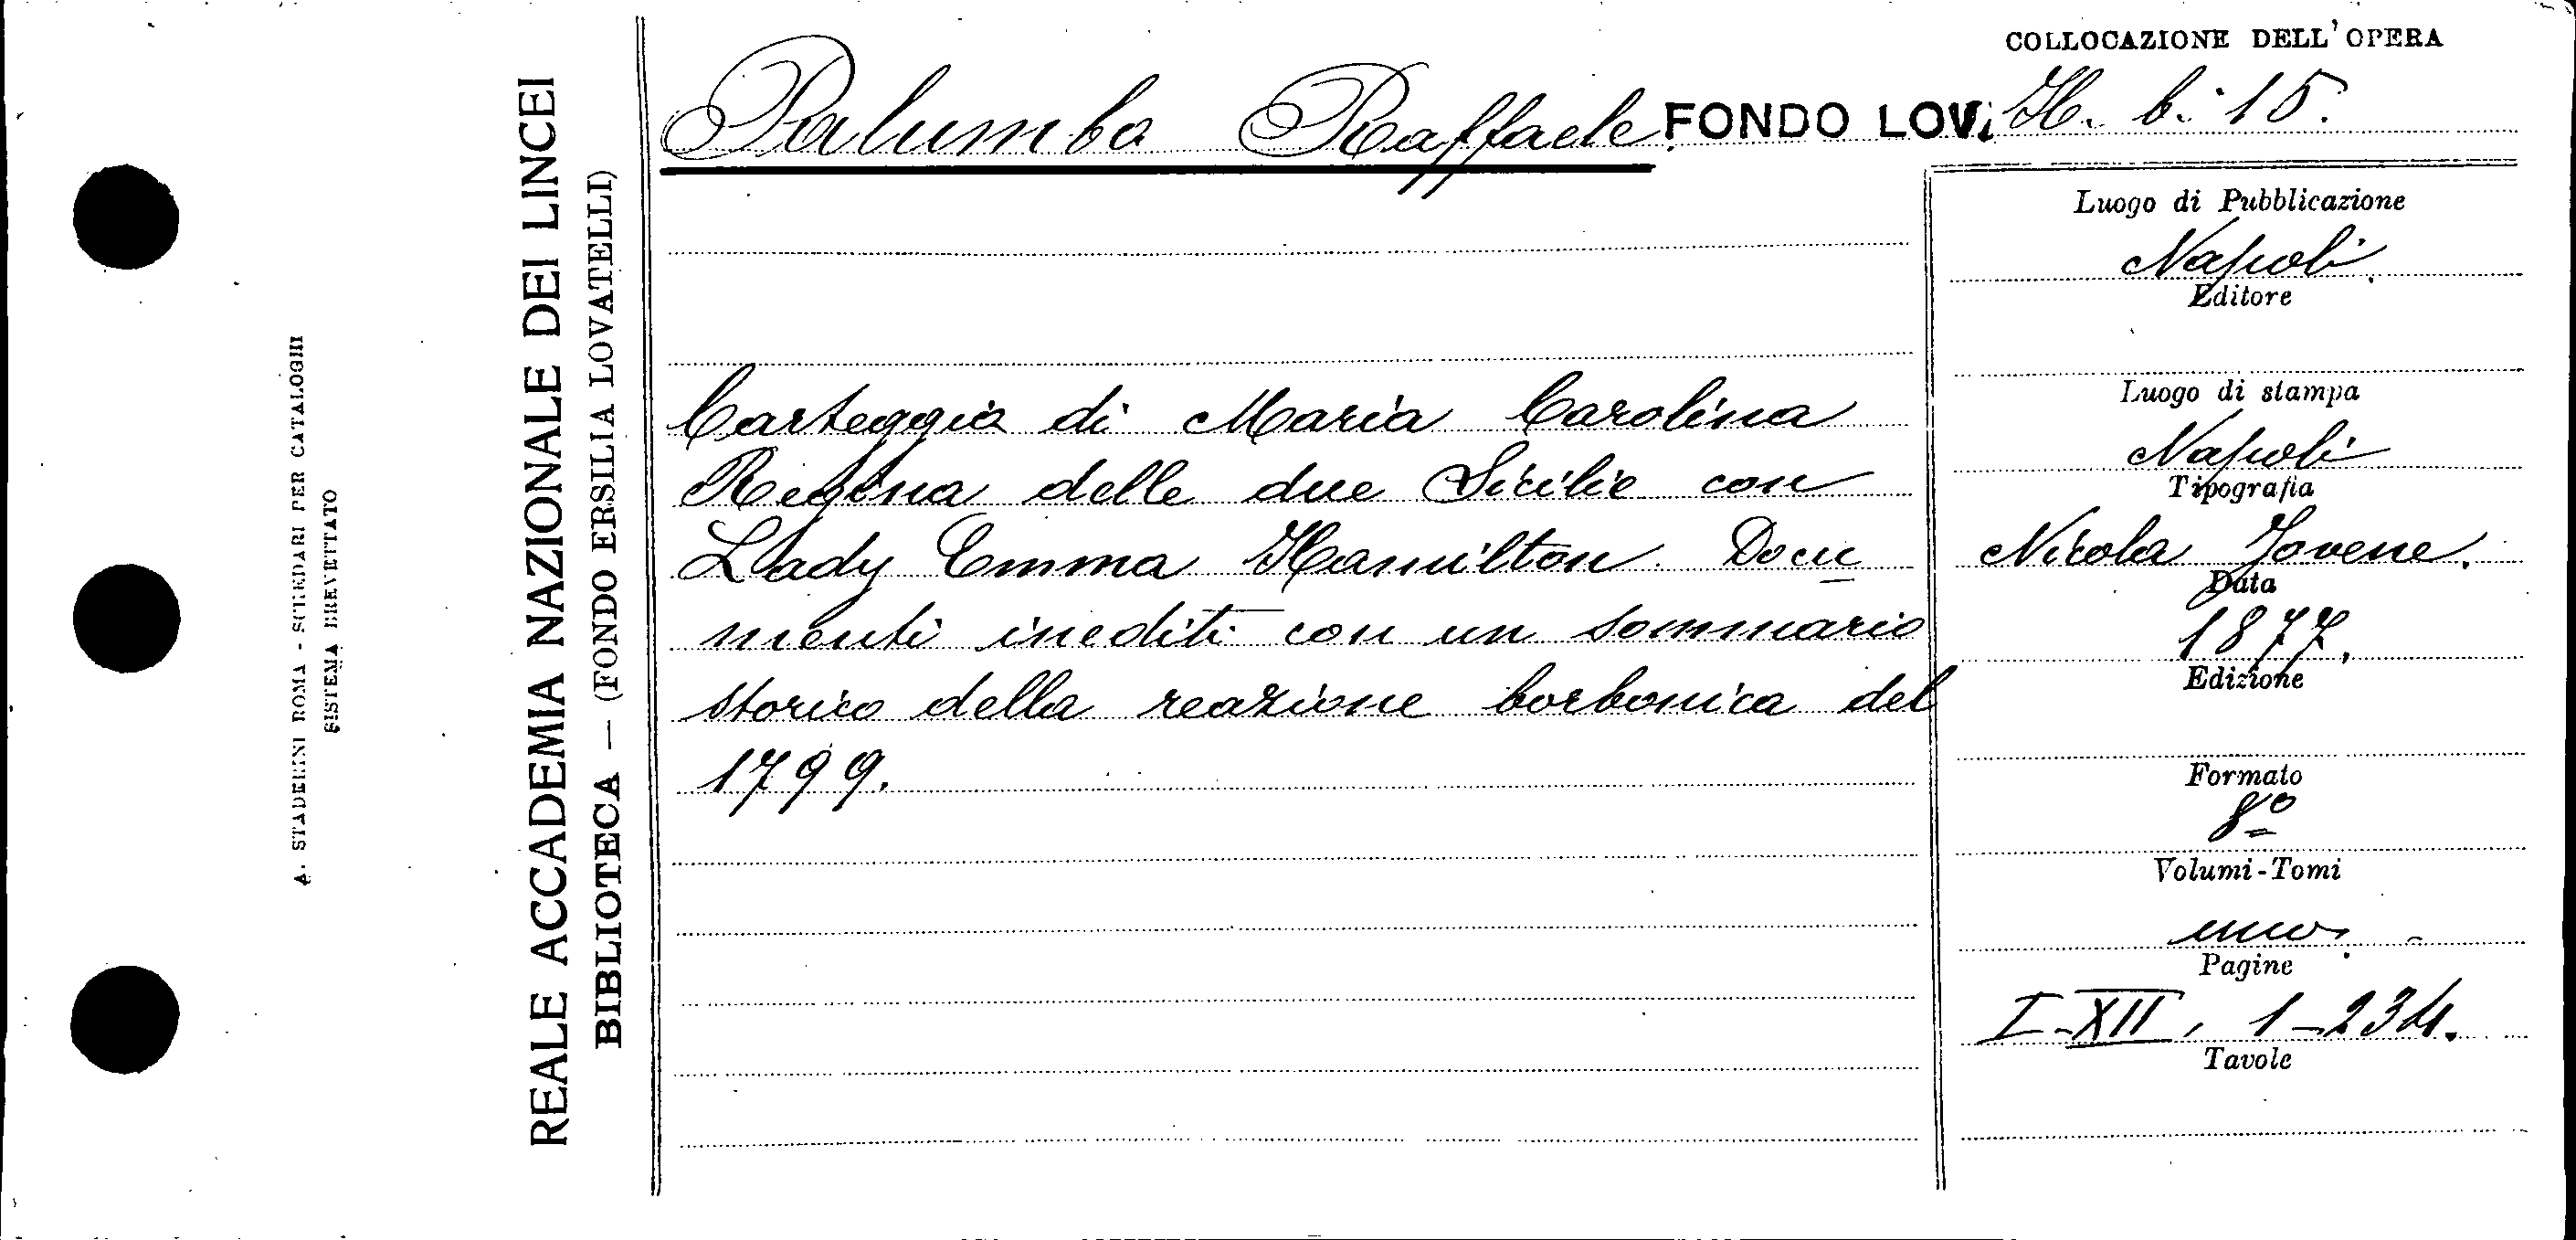 COLLOCAZIONE DELL'OPERA
Palumbo Raffaele. FONDO LOV. H. b. 15.
A. STADERINI ROMA - SCHEDARI PER CATALOGHI
SISTEMA BREVETTATO
REALE ACCADEMIA NAZIONALE DEI LINCEI
BIBLIOTECA — (FONDO ERSILIA LOVATELLI)
Carteggio di Maria Carolina
Regina delle due Sicilie con
Lady Emma Hamilton. Docu
menti inediti con un sommario
storico della reazione borbonica del
1799.
Luogo di Pubblicazione
Napoli.
Editore
Luogo di stampa
Napoli
Tipografia
Nicola Jovene.
Data
1877.
Edizione
Formato
8º
Volumi-Tomi
uno.
Pagine
I-XII, 1-234.
Tavole